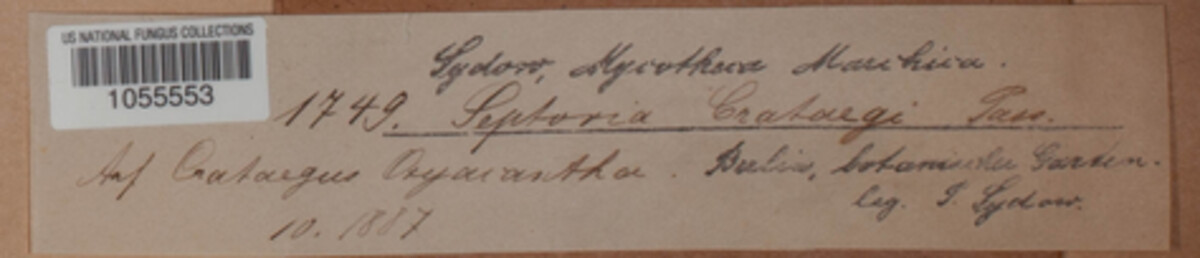 US NATIONAL FUNGUS COLLECTIONS
1055553
Sydow, Mycotheca Marchica.
1749. Septoria Crataegi Pass.
Auf Crataegus Oxyacantha. Berlin, botanischer Garten.
leg. P. Sydow.
10. 1887